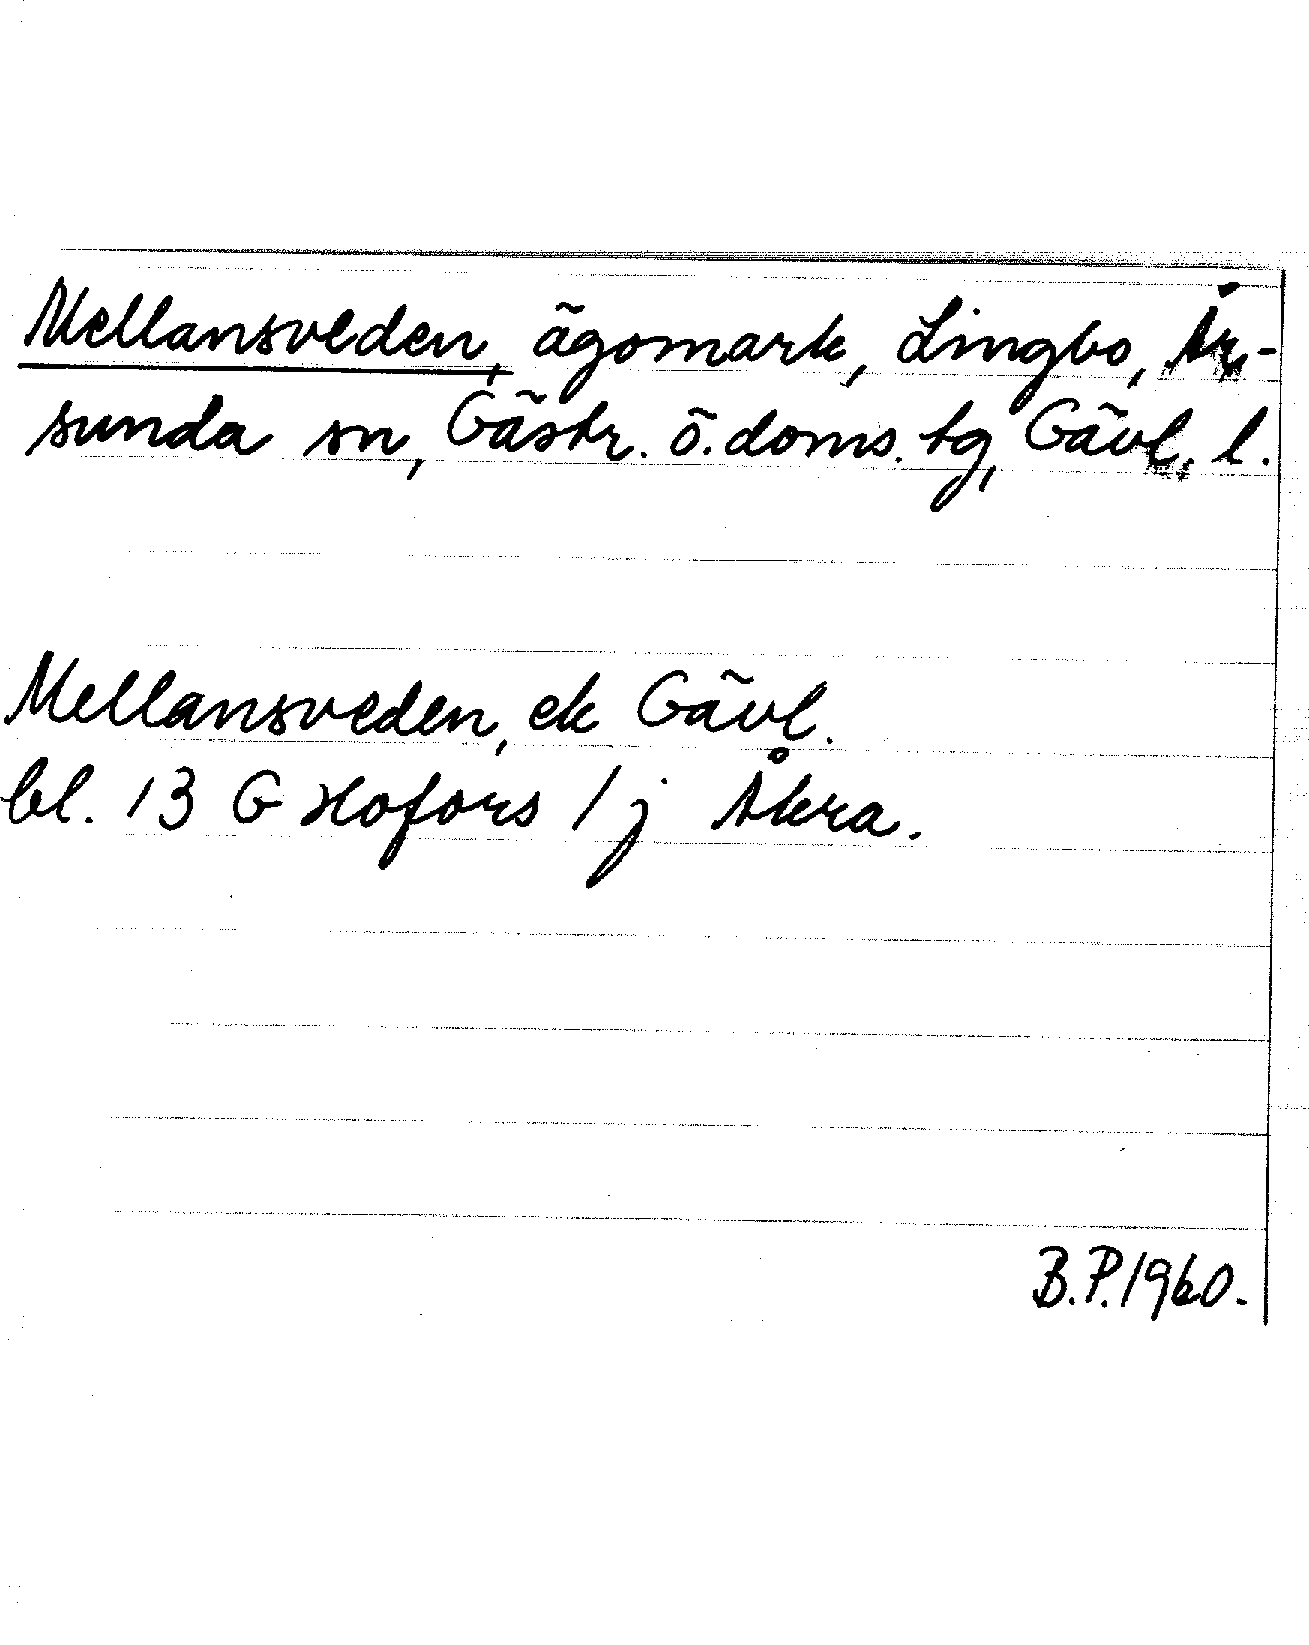 Mellansveden, ägomark, Lingbo, År-
sunda sn, Gästr. ö. doms. tg, Gävl. l.
Mellansveden, ek Gävl.
bl. 13 G Hofors 1 j Åkra.
B.P. 1960.